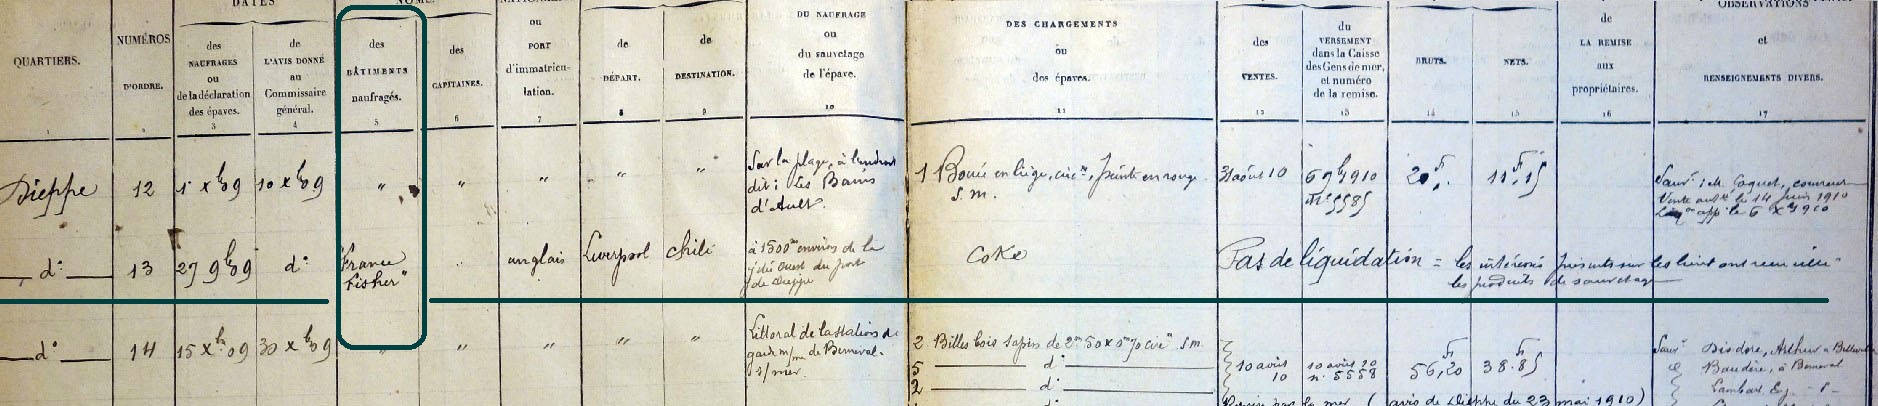 DATES
QUARTIERS.
NUMÉROS
D'ORDRE.
des
NAUFRAGES
ou
de la déclaration
des épaves.
de
L'AVIS DONNÉ
au
Commissaire
général.
des
BÂTIMENTS
naufragés.
des
CAPITAINES.
ou
PORT
d'immatricu-
lation.
de
DÉPART.
de
DESTINATION.
DU NAUFRAGE
ou
du sauvetage
de l'épave.
DES CHARGEMENTS
ou
des épaves.
des
VENTES.
du
VERSEMENT
dans la Caisse
des Gens de mer,
et numéro
de la remise.
BRUTS.
NETS.
de
LA REMISE
aux
propriétaires.
OBSERVATIONS
et
RENSEIGNEMENTS DIVERS.
1 2 3 4 5 6 7 8 9 10 11 12 13 14 15 16 17
Dieppe
12
1 xbre 09
10 xbre 09
"
"
"
"
"
Sur la plage, à l'endroit
dit: Les Bains
d'Ault.
1 Bouée en liège, peinte en rouge
s.m.
31 août 10
6 9bre 1910
n° 5585
20f
11f,15
Sauvr: M. Coquet,
Vente le 14 juin 1910
app. le 6 1910
d°
13
27 9bre 09
d°
"France
Fisher"
anglais
Liverpool
Chili
à 1500m environ de la
jetée ouest du port
de Dieppe
Coke
Pas de liquidation = les intéressés présents sur les lieux ont recueilli
les produits de sauvetage
d°
14
15 xbre 09
30 xbre 09
"
"
"
"
"
Littoral de la station de
garde m/me de Berneval-
s/mer.
2 Billes bois sapin de 2m50 x 0m70 s.m.
5 d°
2 d°
10 avril
10
10 avril 10
n° 5558
56f,20
38f.85
Sauvr Disdore, Arthur à
Baudère, à Berneval
Lambart Eug.
(avis de Dieppe du 23 mai 1910)